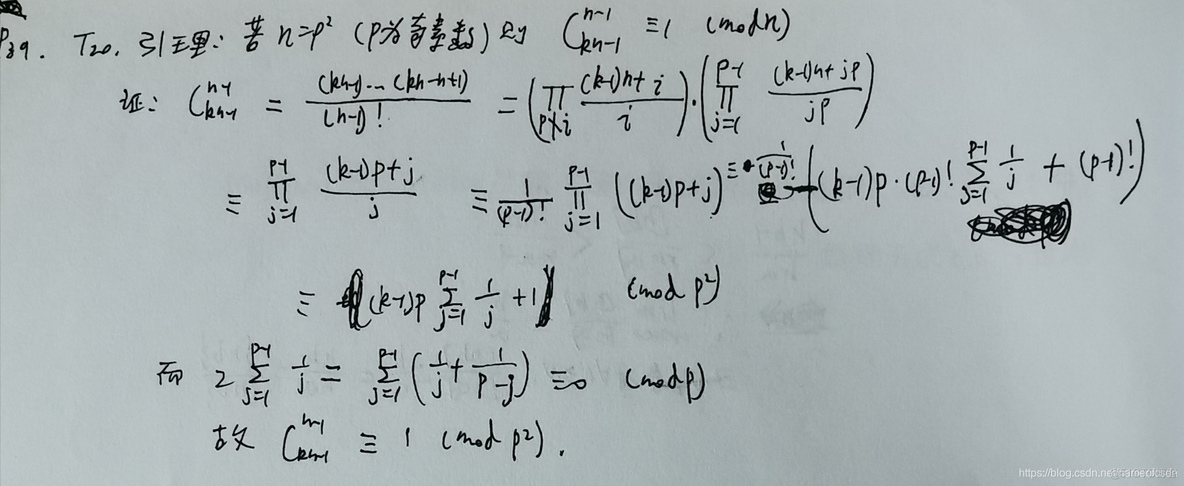 P39. T20. 引理: 若 n=p² (p为奇素数) 则 C_{kn-1}^{n-1} ≡ 1 (mod n)
证: C_{kn-1}^{n-1} = \frac{(kn-1)...(kn-n+1)}{(n-1)!} = (∏_{p∤i} \frac{(k-1)n+i}{i})·(∏_{j=1}^{p-1} \frac{(k-1)n+jp}{jp})
≡ ∏_{j=1}^{p-1} \frac{(k-1)p+j}{j} ≡ \frac{1}{(p-1)!} ∏_{j=1}^{p-1} ((k-1)p+j) ≡ \frac{1}{(p-1)!} ((k-1)p·(p-1)! ∑_{j=1}^{p-1} \frac{1}{j} + (p-1)!)
≡ (k-1)p ∑_{j=1}^{p-1} \frac{1}{j} + 1 (mod p²)
而 2 ∑_{j=1}^{p-1} \frac{1}{j} = ∑_{j=1}^{p-1} (\frac{1}{j} + \frac{1}{p-j}) ≡ 0 (mod p)
故 C_{kn-1}^{n-1} ≡ 1 (mod p²).
https://blog.csdn.net